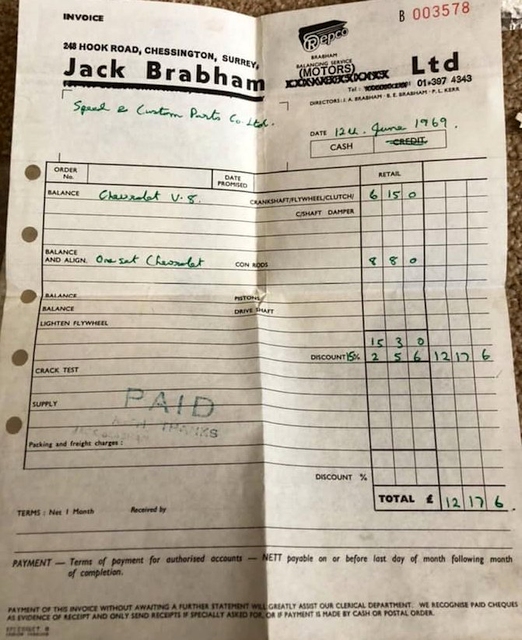 INVOICE
B 003578
248 HOOK ROAD, CHESSINGTON, SURREY,
Jack Brabham
Repco
BRABHAM
BALANCING SERVICE
(MOTORS) Ltd
Tel: 01-397 4343
DIRECTORS: J. A. BRABHAM - B. E. BRABHAM - P. L. KERR
Speed & Custom Parts Co. Ltd.
DATE 12th June 1969.
CASH CREDIT
ORDER No. DATE PROMISED RETAIL
BALANCE Chevrolet V.8. CRANKSHAFT/FLYWHEEL/CLUTCH/ 6 15 0
C/SHAFT DAMPER
BALANCE AND ALIGN. One set Chevrolet CON RODS 8 8 0
BALANCE PISTONS
BALANCE DRIVE SHAFT
LIGHTEN FLYWHEEL
15 3 0
DISCOUNT 15% 2 5 6 12 17 6
CRACK TEST
SUPPLY
PAID
WITH THANKS
Packing and freight charges :
DISCOUNT %
TOTAL £ 12 17 6.
TERMS : Net 1 Month Received by
PAYMENT — Terms of payment for authorised accounts — NETT payable on or before last day of month following month
of completion.
PAYMENT OF THIS INVOICE WITHOUT AWAITING A FURTHER STATEMENT WILL GREATLY ASSIST OUR CLERICAL DEPARTMENT. WE RECOGNISE PAID CHEQUES
AS EVIDENCE OF RECEIPT AND ONLY SEND RECEIPTS IF SPECIALLY ASKED FOR, OR IF PAYMENT IS MADE BY CASH OR POSTAL ORDER.